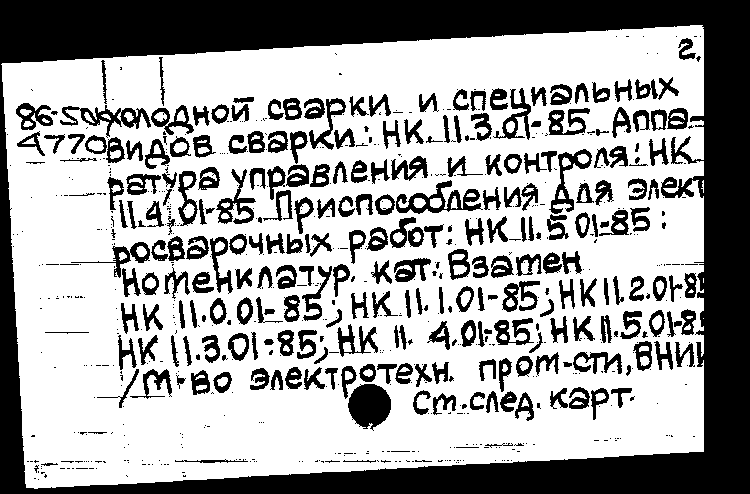 2.
86-50 холодной сварки и специальных
4770 видов сварки: НК. 11.3.01-85. Аппа-
ратура управления и контроля: НК
11.4.01-85. Приспособления для элект
росварочных работ: НК 11.5.01-85:
Номенклатур. кат. Взамен
НК 11.0.01-85; НК 11.1.01-85; НК 11.2.01-85
НК 11.3.01-85; НК 11.4.01-85; НК 11.5.01-85
/М-во электротехн. пром-сти, ВНИИ
См.след. карт.